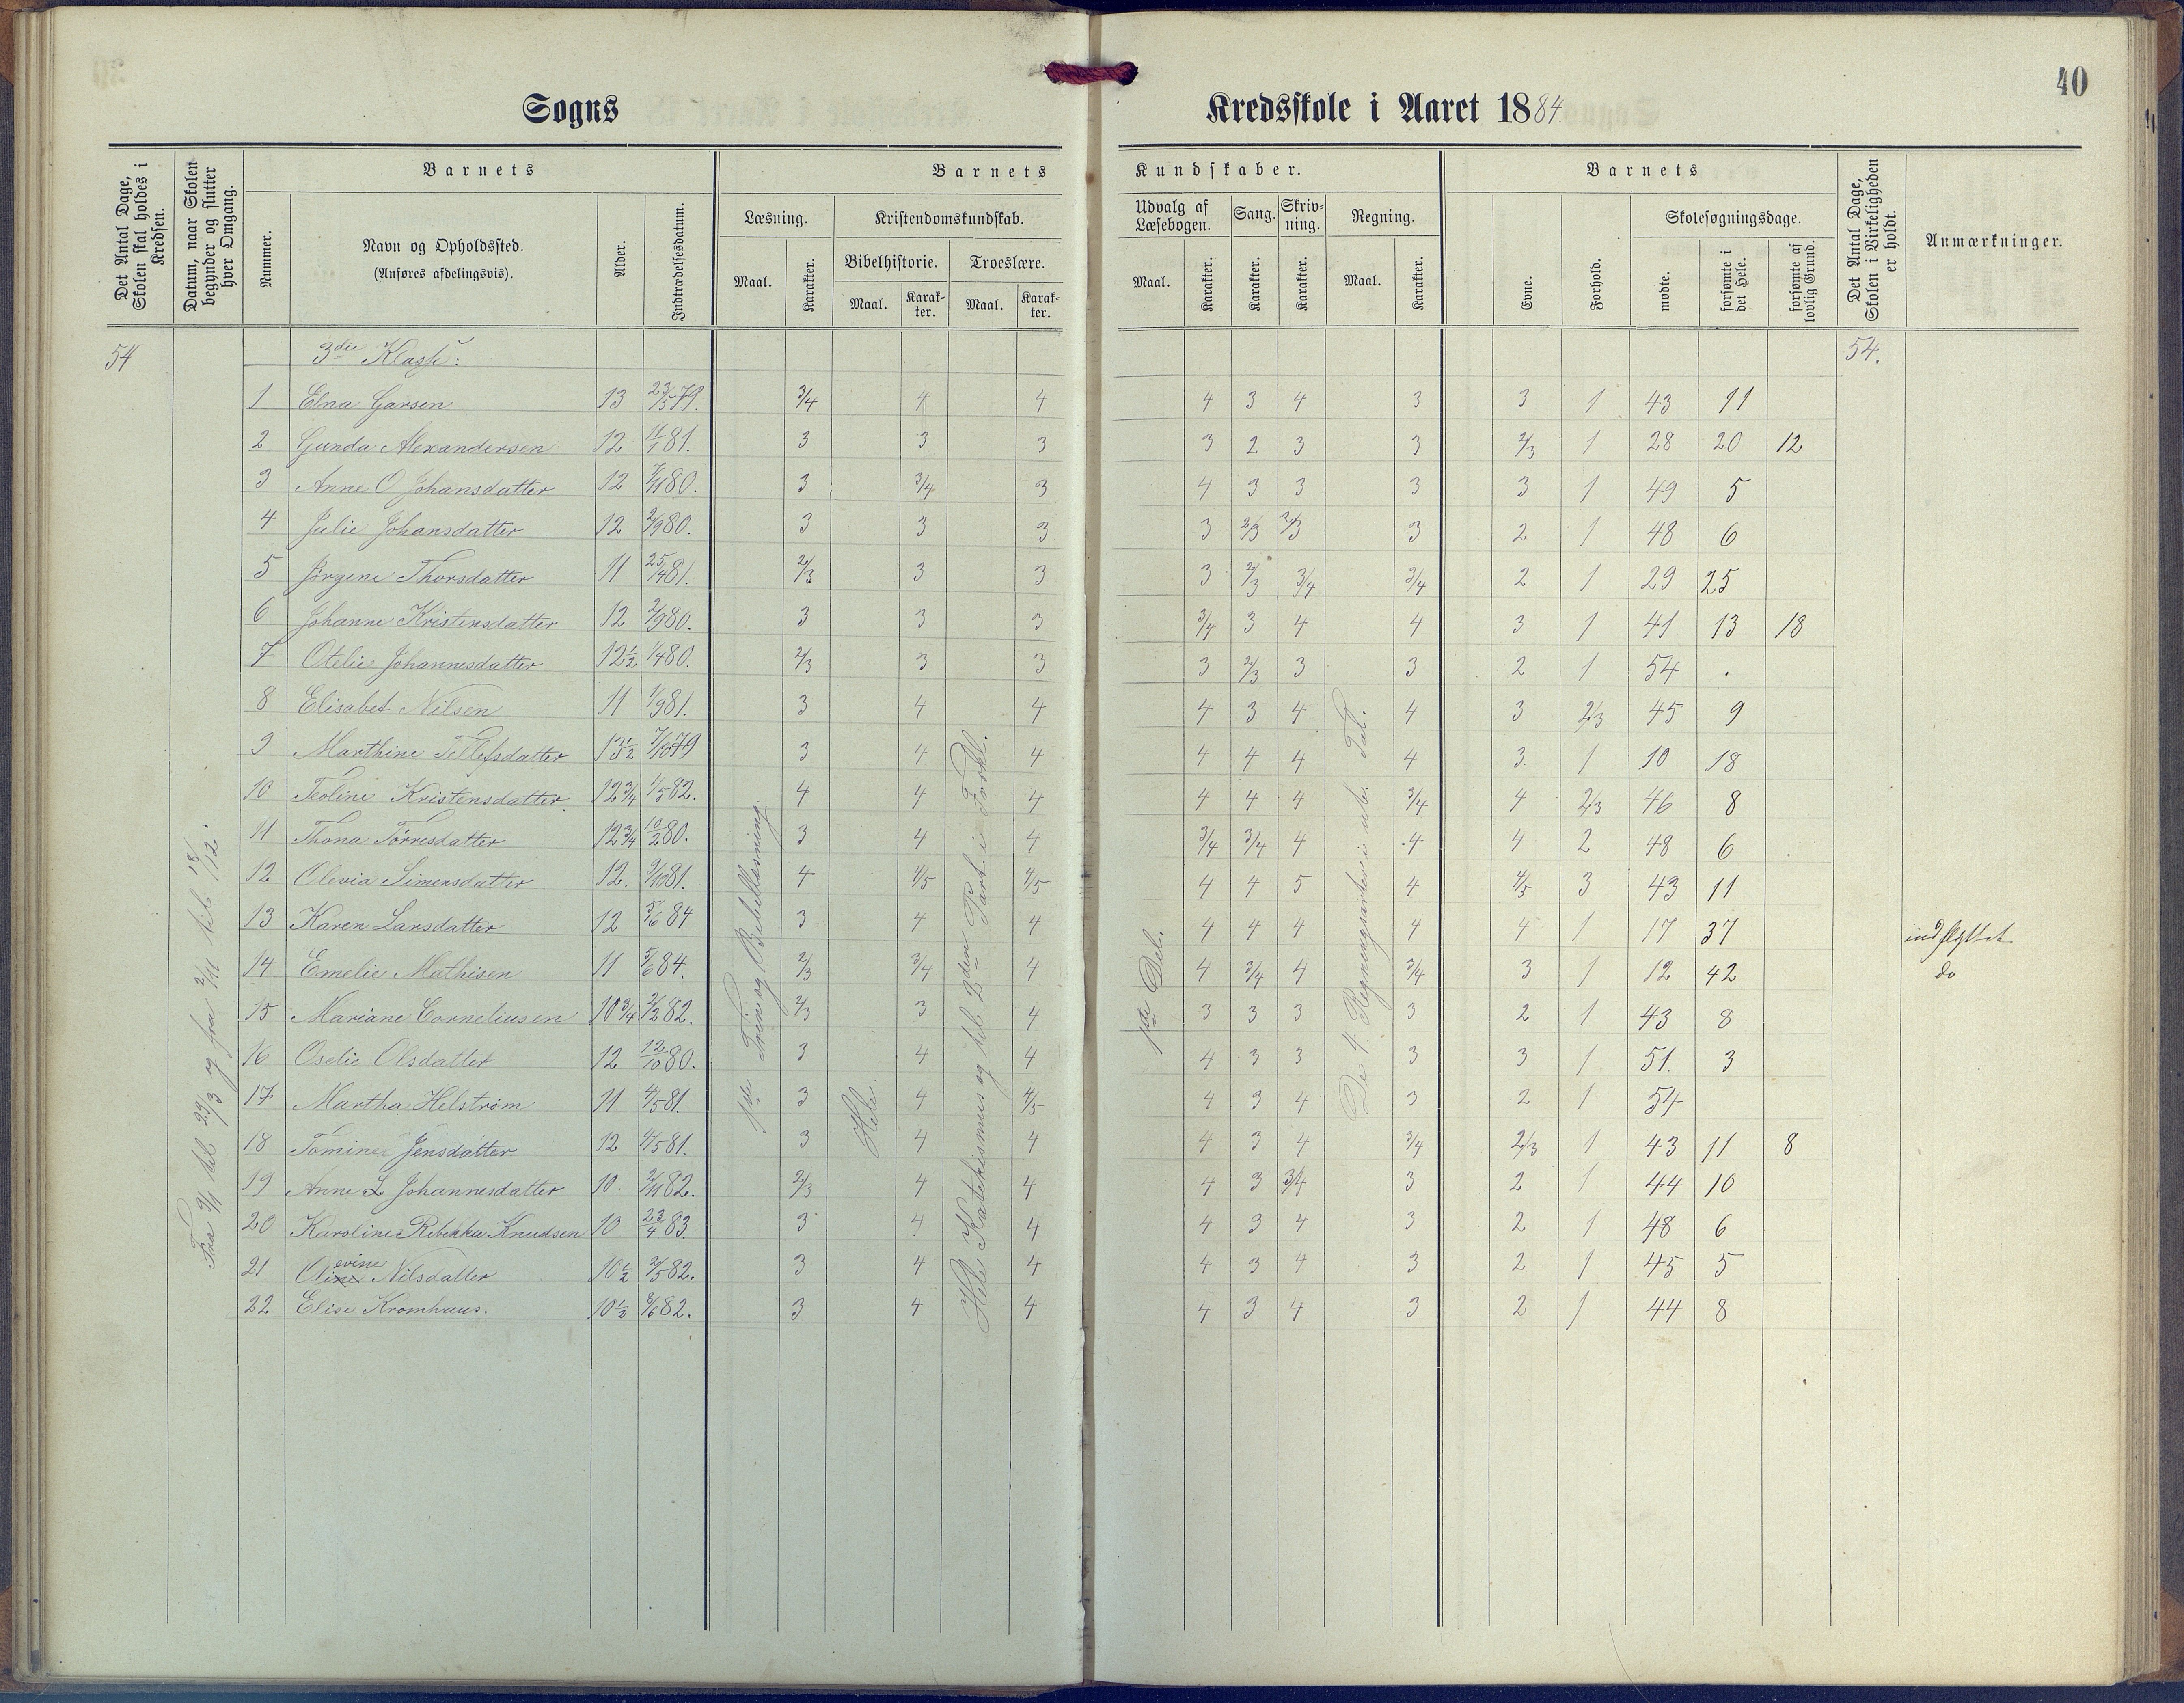 40
Sogns Kredsskole i Aaret 1884.
Det Antal Dage, Skolen skal holdes i Kredsen.
Datum, naar Skolen begynder og slutter hver Omgang.
Barnets
Nummer.
Navn og Opholdssted.
(Anføres afdelingsvis).
Alder.
Indtrædelsesdatum.
Barnets Kundskaber.
Læsning.
Maal. Karakter.
Kristendomskundskab.
Bibelhistorie. Troeslære.
Maal. Karakter. Maal. Karakter.
Udvalg af Læsebogen. Sang. Skrivning. Regning.
Maal. Karakter. Karakter. Karakter. Maal. Karakter.
Barnets
Evne. Forhold.
Skolesøgningsdage.
mødte. forsømte i det Hele. forsømte af lovlig Grund.
Det Antal Dage, Skolen i Virkeligheden er holdt.
Anmærkninger.
54 3die Klasse: 54.
Fra 9/1 til 29/3 og fra 2/11 til 18/12.
1ste Trin og Bibellæsning.
Hele
Hele Katekismus og til 2den Part i Forkl.
1ste Del.
De 4 Regningsarter i ube. Tal.
1 Elna Garsen 13 23/5 79. 3/4 4 4 4 3 4 3 3 1 43 11
2 Gunda Alexandersen 12 11/1 81. 3 3 3 3 2 3 3 2/3 1 28 20 12
3 Anne O Johansdatter 12 7/11 80. 3 3/4 3 4 3 3 3 3 1 49 5
4 Julie Johansdatter 12 2/9 80. 3 3 3 3 2/3 2/3 3 2 1 48 6
5 Jörgene Thorsdatter 11 25/4 81. 2/3 3 3 3 2/3 3/4 3/4 2 1 29 25
6 Johanne Kristensdatter 12 2/9 80. 3 3 3 3/4 3 4 4 3 1 41 13 18
7 Otelie Johannesdatter 12½ 1/4 80. 2/3 3 3 3 2/3 3 3 2 1 54 .
8 Elisabet Nilsen 11 1/9 81. 3 4 4 4 3 4 4 3 2/3 45 9
9 Marthine Tellefsdatter 13½ 7/10 79 3 4 4 4 4 4 4 3 1 10 18
10 Teoline Kristensdatter 12¾ 1/5 82. 4 4 4 4 4 4 3/4 4 2/3 46 8
11 Thona Törresdatter 12¾ 10/2 80. 3 4 4 3/4 3/4 4 4 4 2 48 6
12 Olevia Simensdatter 12. 9/10 81. 4 4/5 4/5 4 4 5 4 4/5 3 43 11
13 Karen Larsdatter 12 5/6 84 3 4 4 4 4 4 4 4 1 17 37 indflyttet
14 Emelie Mathisen 11 5/6 84. 2/3 3/4 4 4 3/4 4 3/4 3 1 12 42 do
15 Mariane Corneliusen 10¾ 2/2 82. 2/3 3 4 3 3 3 3 2 1 43 8
16 Oselie Olsdatter 12 12/10 80. 3 4 4 4 3 3 3 3 1 51. 3
17 Martha Helström 11 4/5 81. 3 4 4/5 4 3 4 3 2 1 54
18 Tomine Jensdatter 12 4/5 81. 3 4 4 4 3 4 3/4 2/3 1 43 11 8
19 Anne L Johannesdatter 10. 2/11 82. 2/3 4 4 4 3 3/4 3 2 1 44 10
20 Karoline Rebekka Knudsen 10 23/4 83. 3 4 4 4 3 4 3 2 1 48 6
21 Olevine Nilsdatter 10½ 2/5 82. 3 4 4 4 3 4 3 2 1 45 5
22 Elise Kromhuus. 10⅓ 8/6 82. 3 4 4 4 3 4 3 2 1 44 8